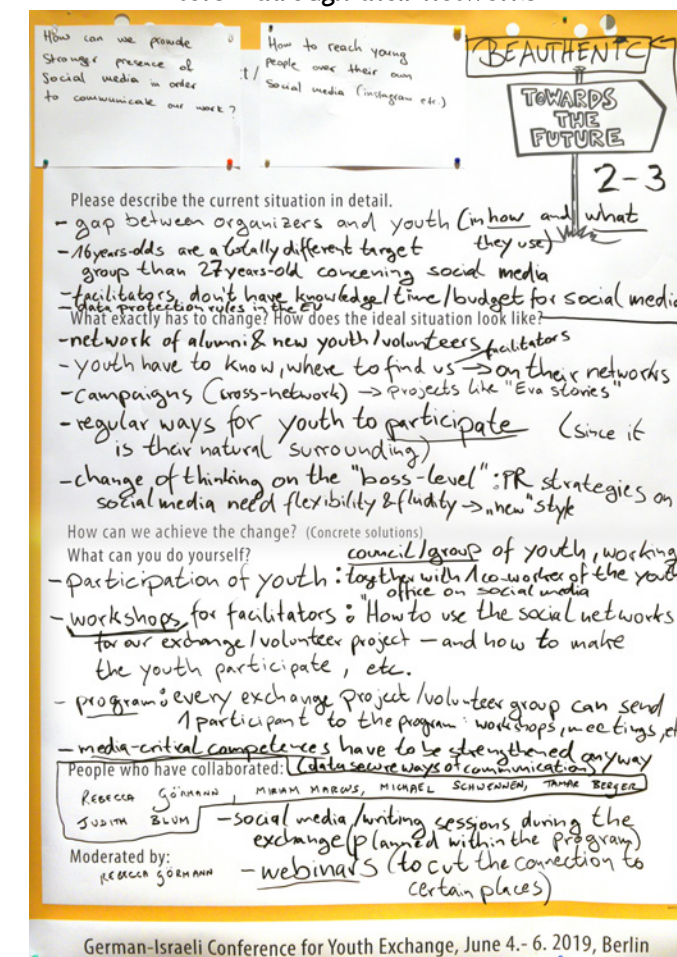 How can we provide
stronger presence of
social media in order
to communicate our work?
How to reach young
people over their own
social media (instagram etc.)
t /
BE AUTHENTIC
TOWARDS
THE
FUTURE
2-3
Please describe the current situation in detail.
- gap between organizers and youth (in how and what
they use)
- 16 years-olds are a totally different target
group than 27 years-old concening social media
- facilitators don't have knowledge/time/budget for social media
- data protection rules in the EU
What exactly has to change? How does the ideal situation look like?
- network of alumni & new youth/volunteers
facilitators
- youth have to know, where to find us → on their networks
- campaigns (cross-network) → projects like "Eva stories"
- regular ways for youth to participate (since it
is their natural surrounding)
- change of thinking on the "boss-level": PR strategies on
social media need flexibility & fludity → "new" style
How can we achieve the change? (Concrete solutions)
What can you do yourself?
council/group of youth, working
- participation of youth: together with 1 co-worker of the youth
office on social media
- workshops for facilitators: "How to use the social networks
for our exchange/volunteer project - and how to make
the youth participate, etc.
- program: every exchange project/volunteer group can send
1 participant to the program: workshops, meetings, et
- media-critical competences have to be strengthened anyway
People who have collaborated: (data secure ways of communication)
REBECCA GÖRMANN, MIRIAM MARCUS, MICHAEL SCHWENNEN, TAMAR BERGER
JUDITH BLUM
- social media/writing sessions during the
exchange (planned within the program)
Moderated by:
REBECCA GÖRMANN
- webinars (to cut the connection to
certain places)
German-Israeli Conference for Youth Exchange, June 4.- 6. 2019, Berlin